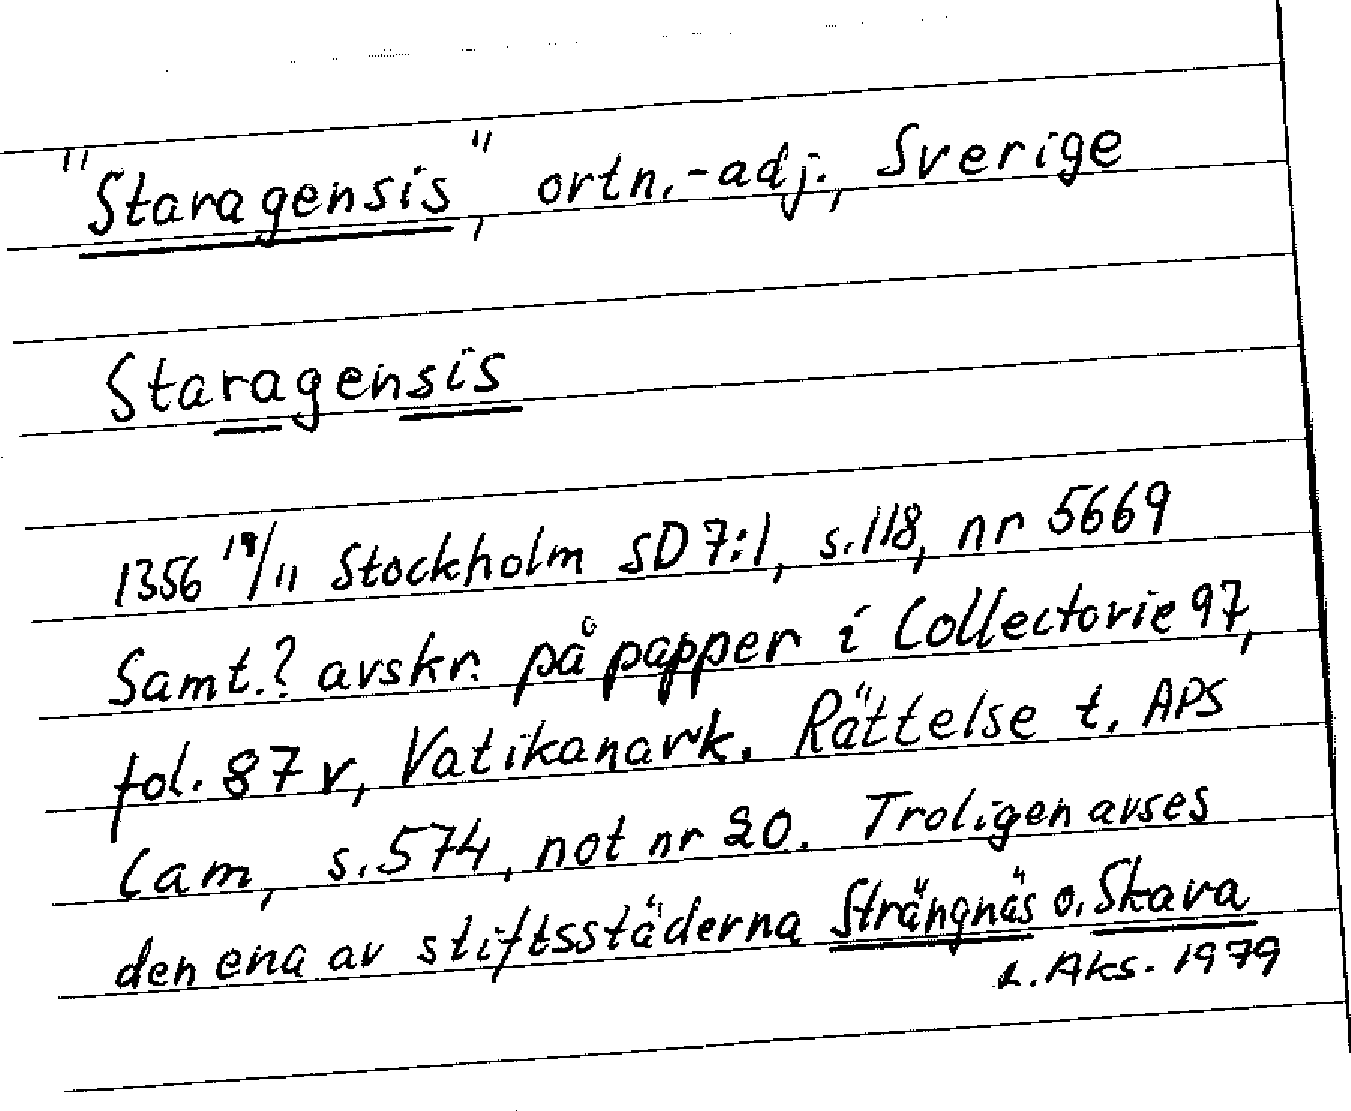 "Staragensis", ortn.-adj., Sverige
Staragensis
1356 19/11 Stockholm SD 7:1, s.118, nr 5669
Samt.? avskr. på papper i Collectorie 97,
fol. 87 v, Vatikanark. Rättelse t. APS
Cam, s.574, not nr 20. Troligen avses
den ena av stiftsstäderna Strängnäs o. Skara
L. Aks. 1979